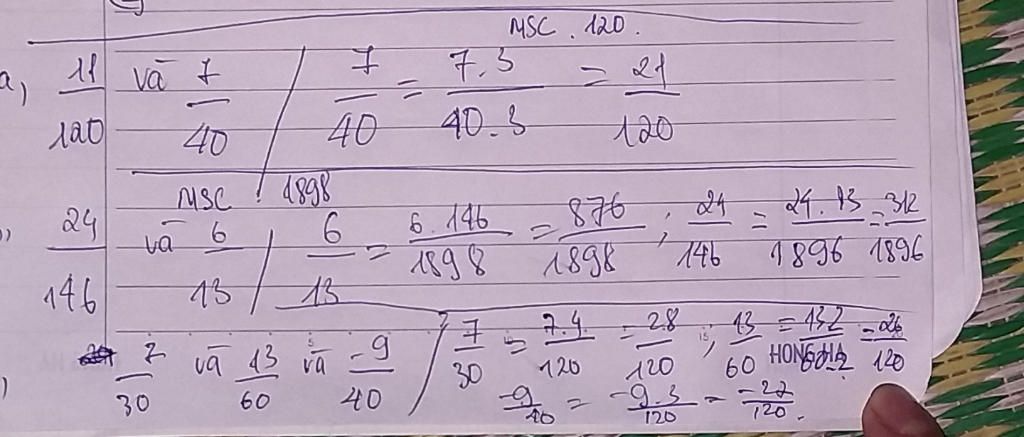 MSC . 120.
a, 11/120 và 7/40 / 7/40 = 7.3/40.3 = 21/120
MSC : 1898
24/146 và 6/13 / 6/13 = 6.146/1898 = 876/1898 ; 24/146 = 24.13/1896 = 312/1896
7/30 và 13/60 và -9/40 / 7/30 = 7.4/120 = 28/120 ; 13/60 = 13.2/60.2 = 26/120
HONG HA
-9/40 = -9.3/120 = -27/120.